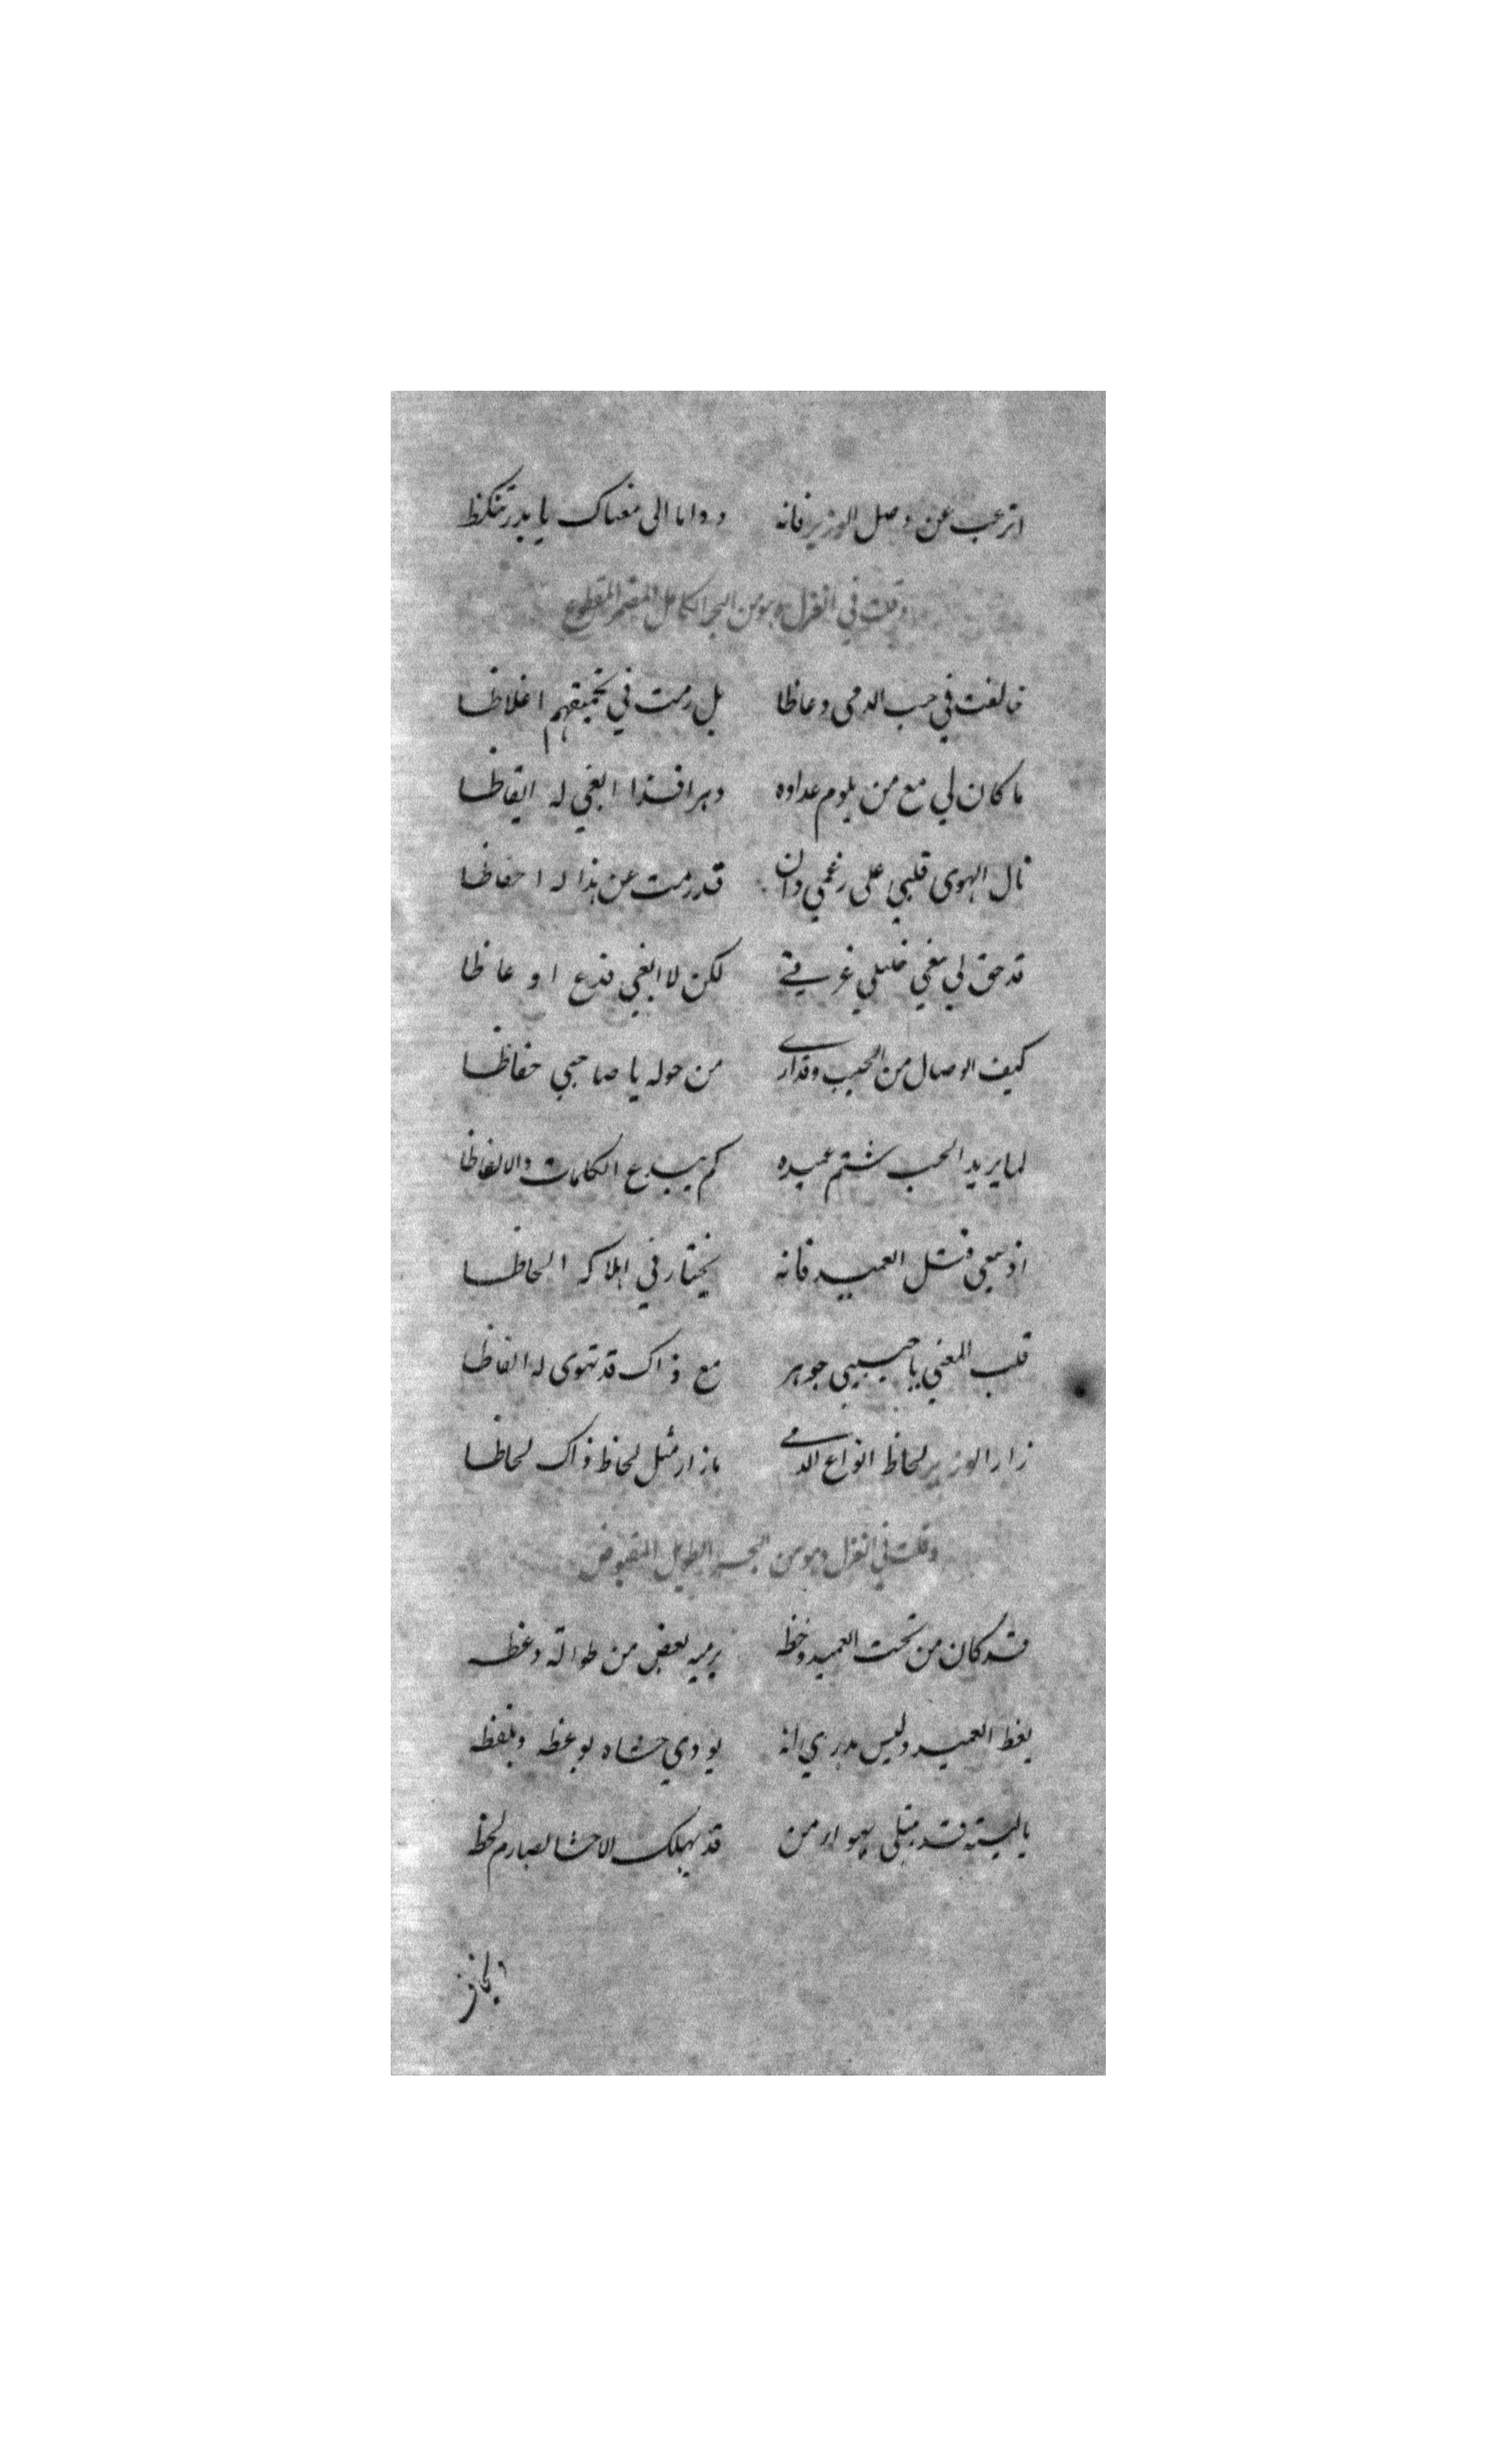 اترغب عن وصل الوزير فانه دواما الى مغناك يا بدر تنكظ
وقلت في الغزل وهو من البحر الكامل المضمر المقطوع
خالفت في حب الدمى وعاظا بل رمت في تحميقهم اغلاظا
ما كان لي مع من يلوم عداوه دهرا فذا ابغي له ايقاظا
نال الهوى قلبي على رغمي وان قد رمت عن هذا له احفاظا
قد حق لي بغي خليلي غرفتي لكن لا ابغي فدع اوعاظا
كيف الوصال من الحبيب وقد ارى من حوله يا صاحبي حفاظا
لما يريد الحب شتم عميده كم يبدع الكلمات والالفاظا
اذ يبغي قتل العميد فانه يختار في اهلاكه الحاظا
قلب المعنى يا حبيبي جوهر مع ذاك قد تهوى له الفاظا
زار الوزير لحاظ انواع الدمى ما زار مثل لحاظ ذاك لحاظا
وقلت في الغزل وهو من البحر الطويل المقبوض
قد كان من تحت العميد وخظ يرميه بعض من طواته وعظه
يغظ العميد وليس يدري انه يودي حشاه بوعظه وبلفظه
يا ليته قد يبتلى بهوى من قد يهلك الاحشا بصارم لحظ